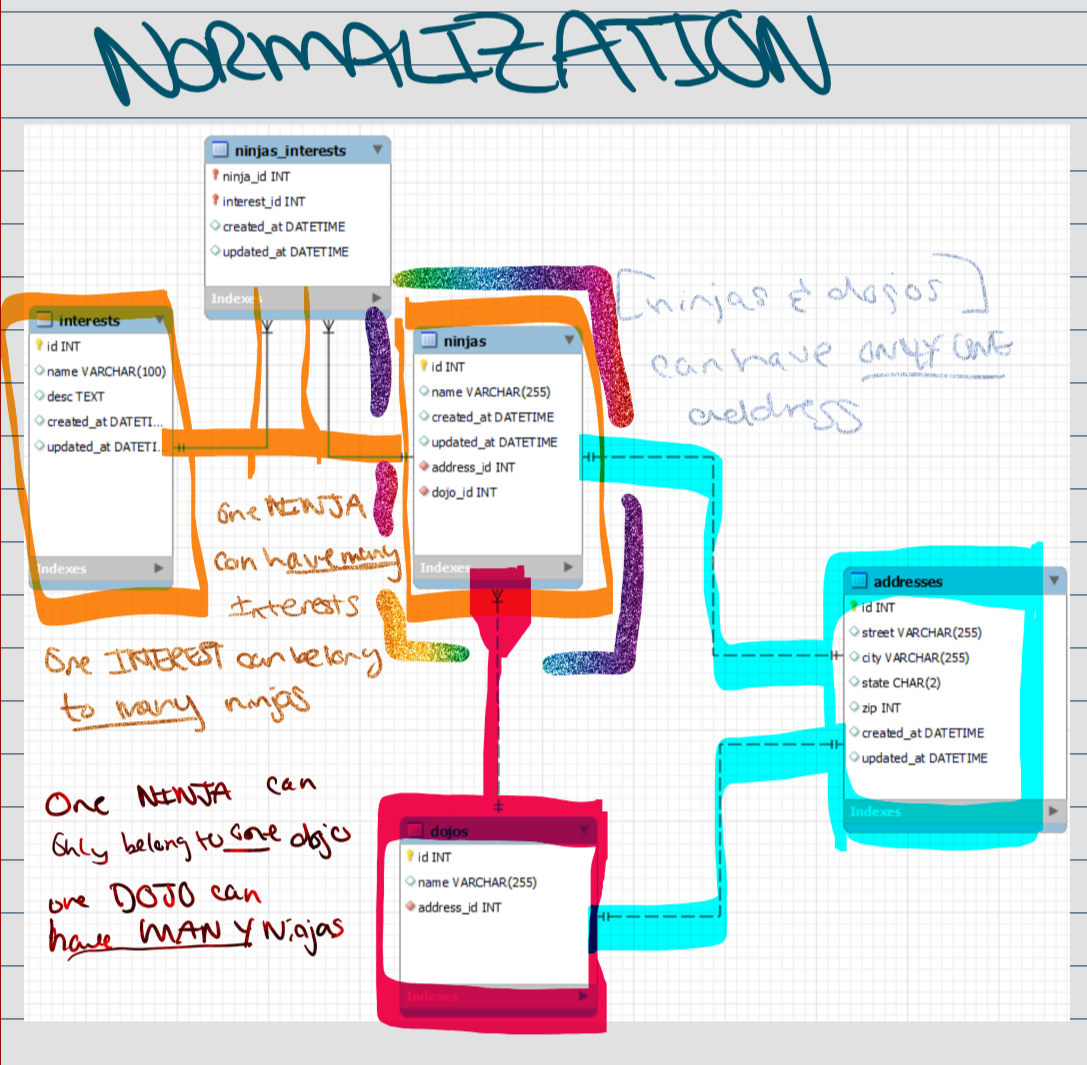 NORMALIZATION
ninjas_interests
ninja_id INT
interest_id INT
created_at DATETIME
updated_at DATETIME
Indexes
interests
id INT
name VARCHAR(100)
desc TEXT
created_at DATETI...
updated_at DATETI...
Indexes
ninjas
id INT
name VARCHAR(255)
created_at DATETIME
updated_at DATETIME
address_id INT
dojo_id INT
Indexes
[ninjas & dojos]
can have ONLY ONE
address
One NINJA
can have many
Interests
One INTEREST can belong
to many ninjas
addresses
id INT
street VARCHAR(255)
city VARCHAR(255)
state CHAR(2)
zip INT
created_at DATETIME
updated_at DATETIME
Indexes
One NINJA can
Only belong to one dojo
one DOJO can
have MANY Ninjas
dojos
id INT
name VARCHAR(255)
address_id INT
Indexes